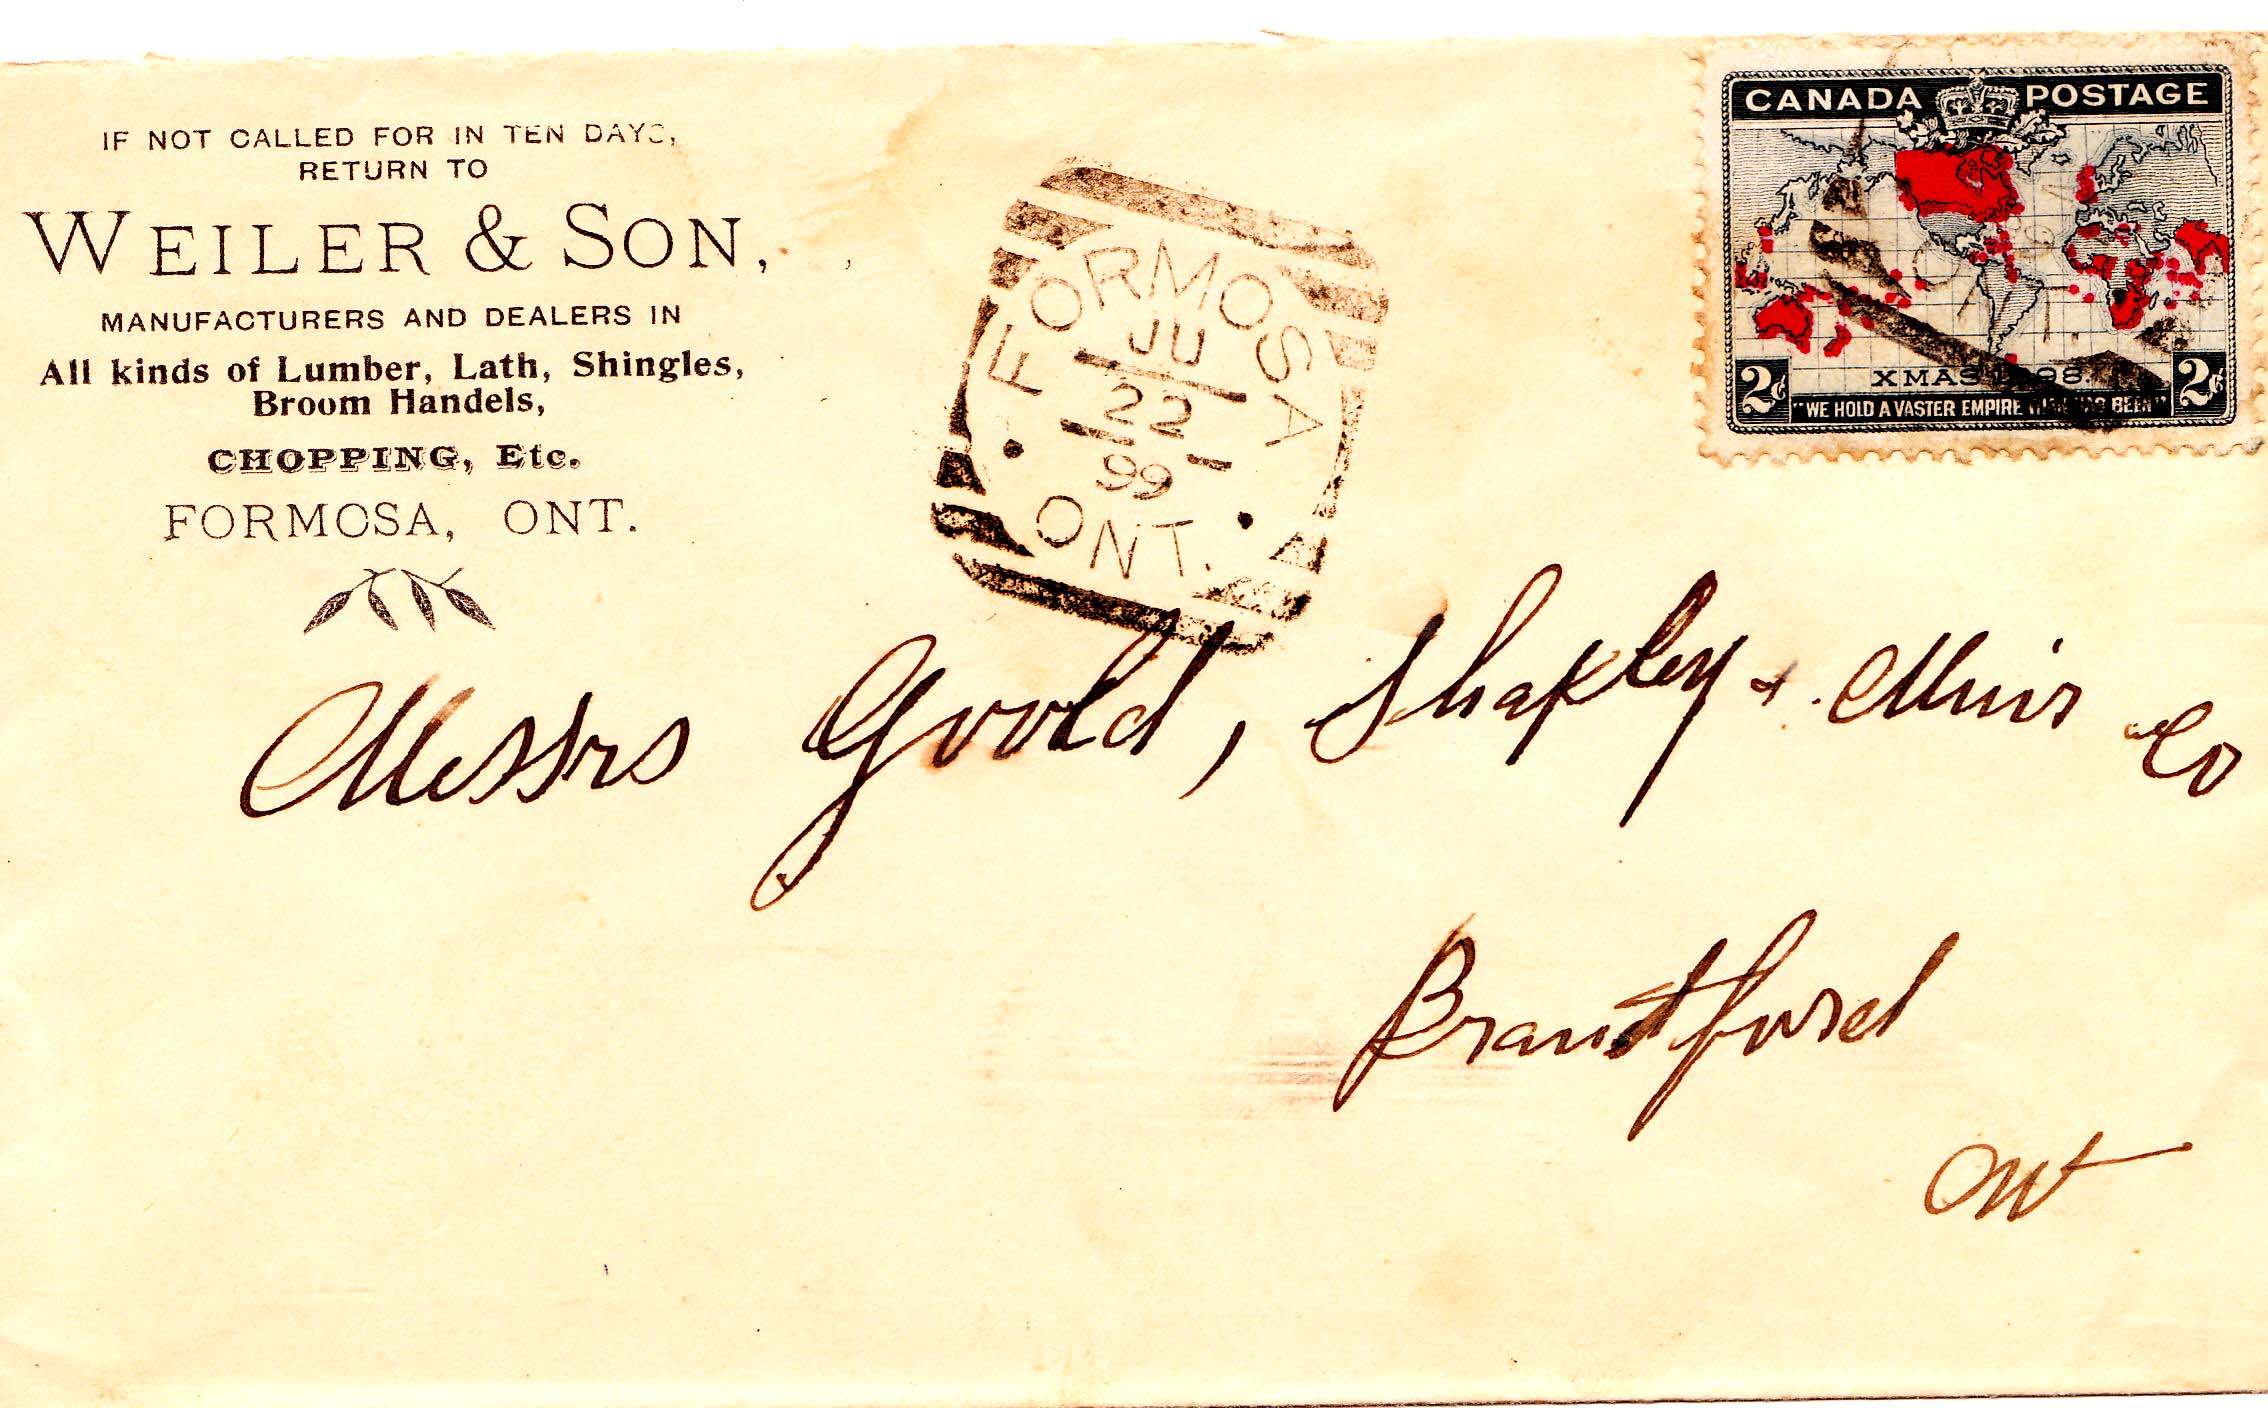 IF NOT CALLED FOR IN TEN DAYS,
RETURN TO
WEILER & SON,
MANUFACTURERS AND DEALERS IN
All kinds of Lumber, Lath, Shingles,
Broom Handels,
CHOPPING, Etc.
FORMOSA, ONT.
FORMOSA
JU
22
99
ONT.
CANADA POSTAGE
2¢ XMAS 1898. 2¢
"WE HOLD A VASTER EMPIRE THAN HAS BEEN"
Messrs Goold, Shapley & Muir Co
Brantford
Ont